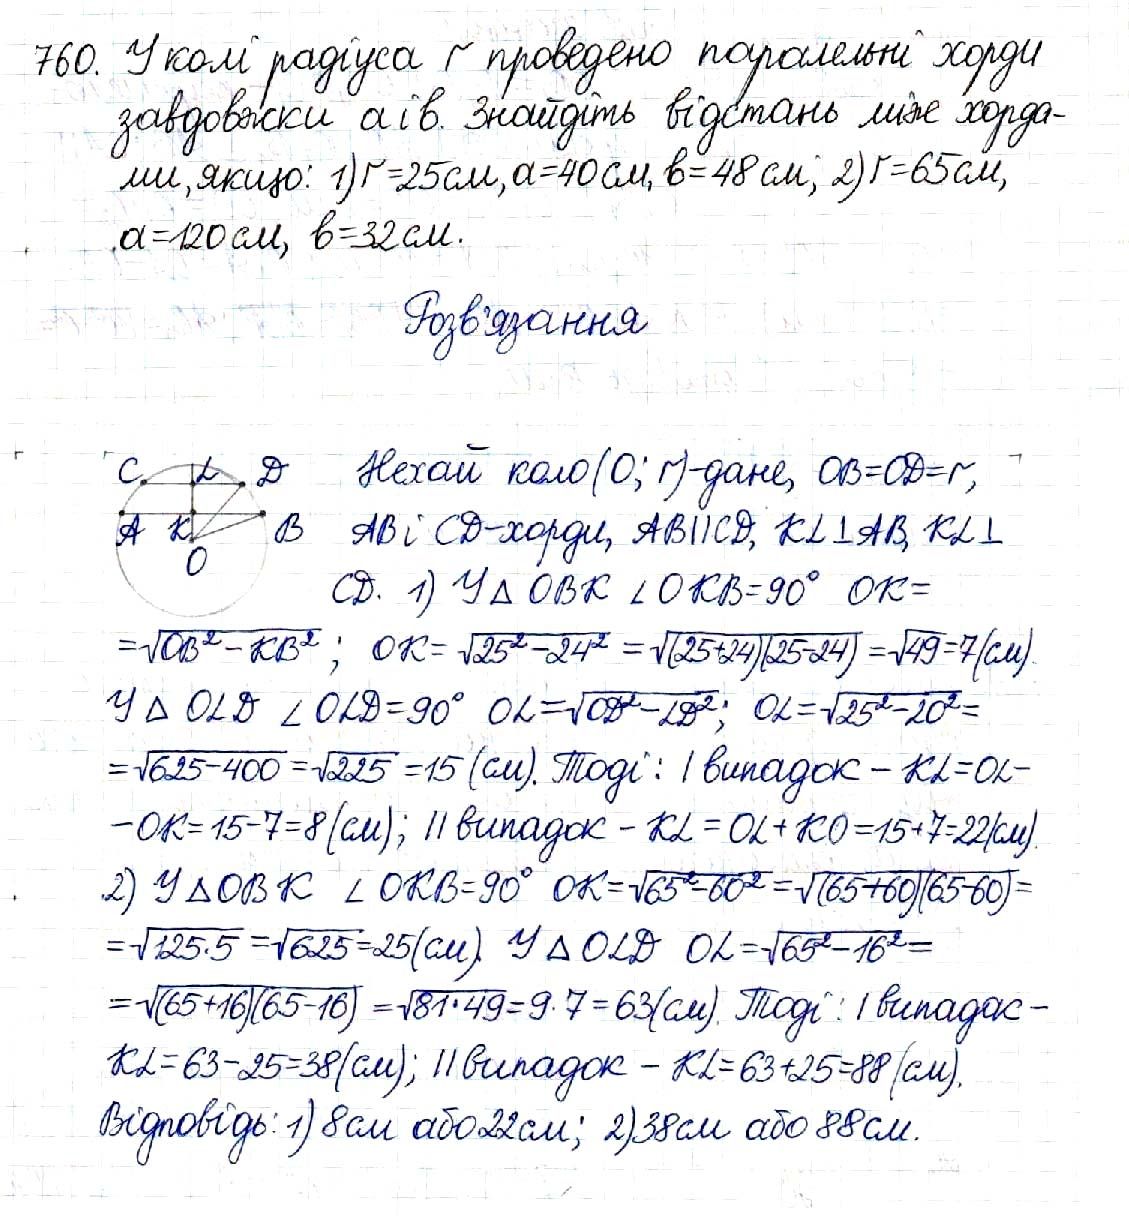 760. У колі радіуса r проведено паралельні хорди
завдовжки a і b. Знайдіть відстань між хорда-
ми, якщо: 1) r=25см, a=40см, b=48см; 2) r=65см,
a=120см, b=32см.
Розв'язання
C L D Нехай коло (O; r)-дане, OB=OD=r,
A K B AB і CD-хорди, AB||CD, KL⊥AB, KL⊥
O CD. 1) У △ OBK ∠OKB=90° OK=
=√(OB²-KB²); OK=√(25²-24²)=√((25+24)(25-24))=√49=7(см).
У △ OLD ∠OLD=90° OL=√(OD²-LD²); OL=√(25²-20²)=
=√(625-400)=√225=15 (см). Тоді: I випадок - KL=OL-
-OK=15-7=8(см); II випадок - KL=OL+KO=15+7=22(см).
2) У △OBK ∠OKB=90° OK=√(65²-60²)=√((65+60)(65-60))=
=√(125·5)=√625=25(см). У △OLD OL=√(65²-16²)=
=√((65+16)(65-16))=√(81·49)=9·7=63(см). Тоді: I випадок -
KL=63-25=38(см); II випадок - KL=63+25=88(см).
Відповідь: 1) 8см або 22см; 2) 38см або 88см.